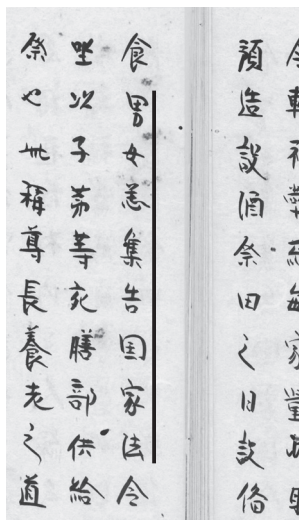 預造設酒祭田之日設備
食男女悉集告国家法令
坐以子弟等宛膳部供給
祭也此稱尊長養老之道